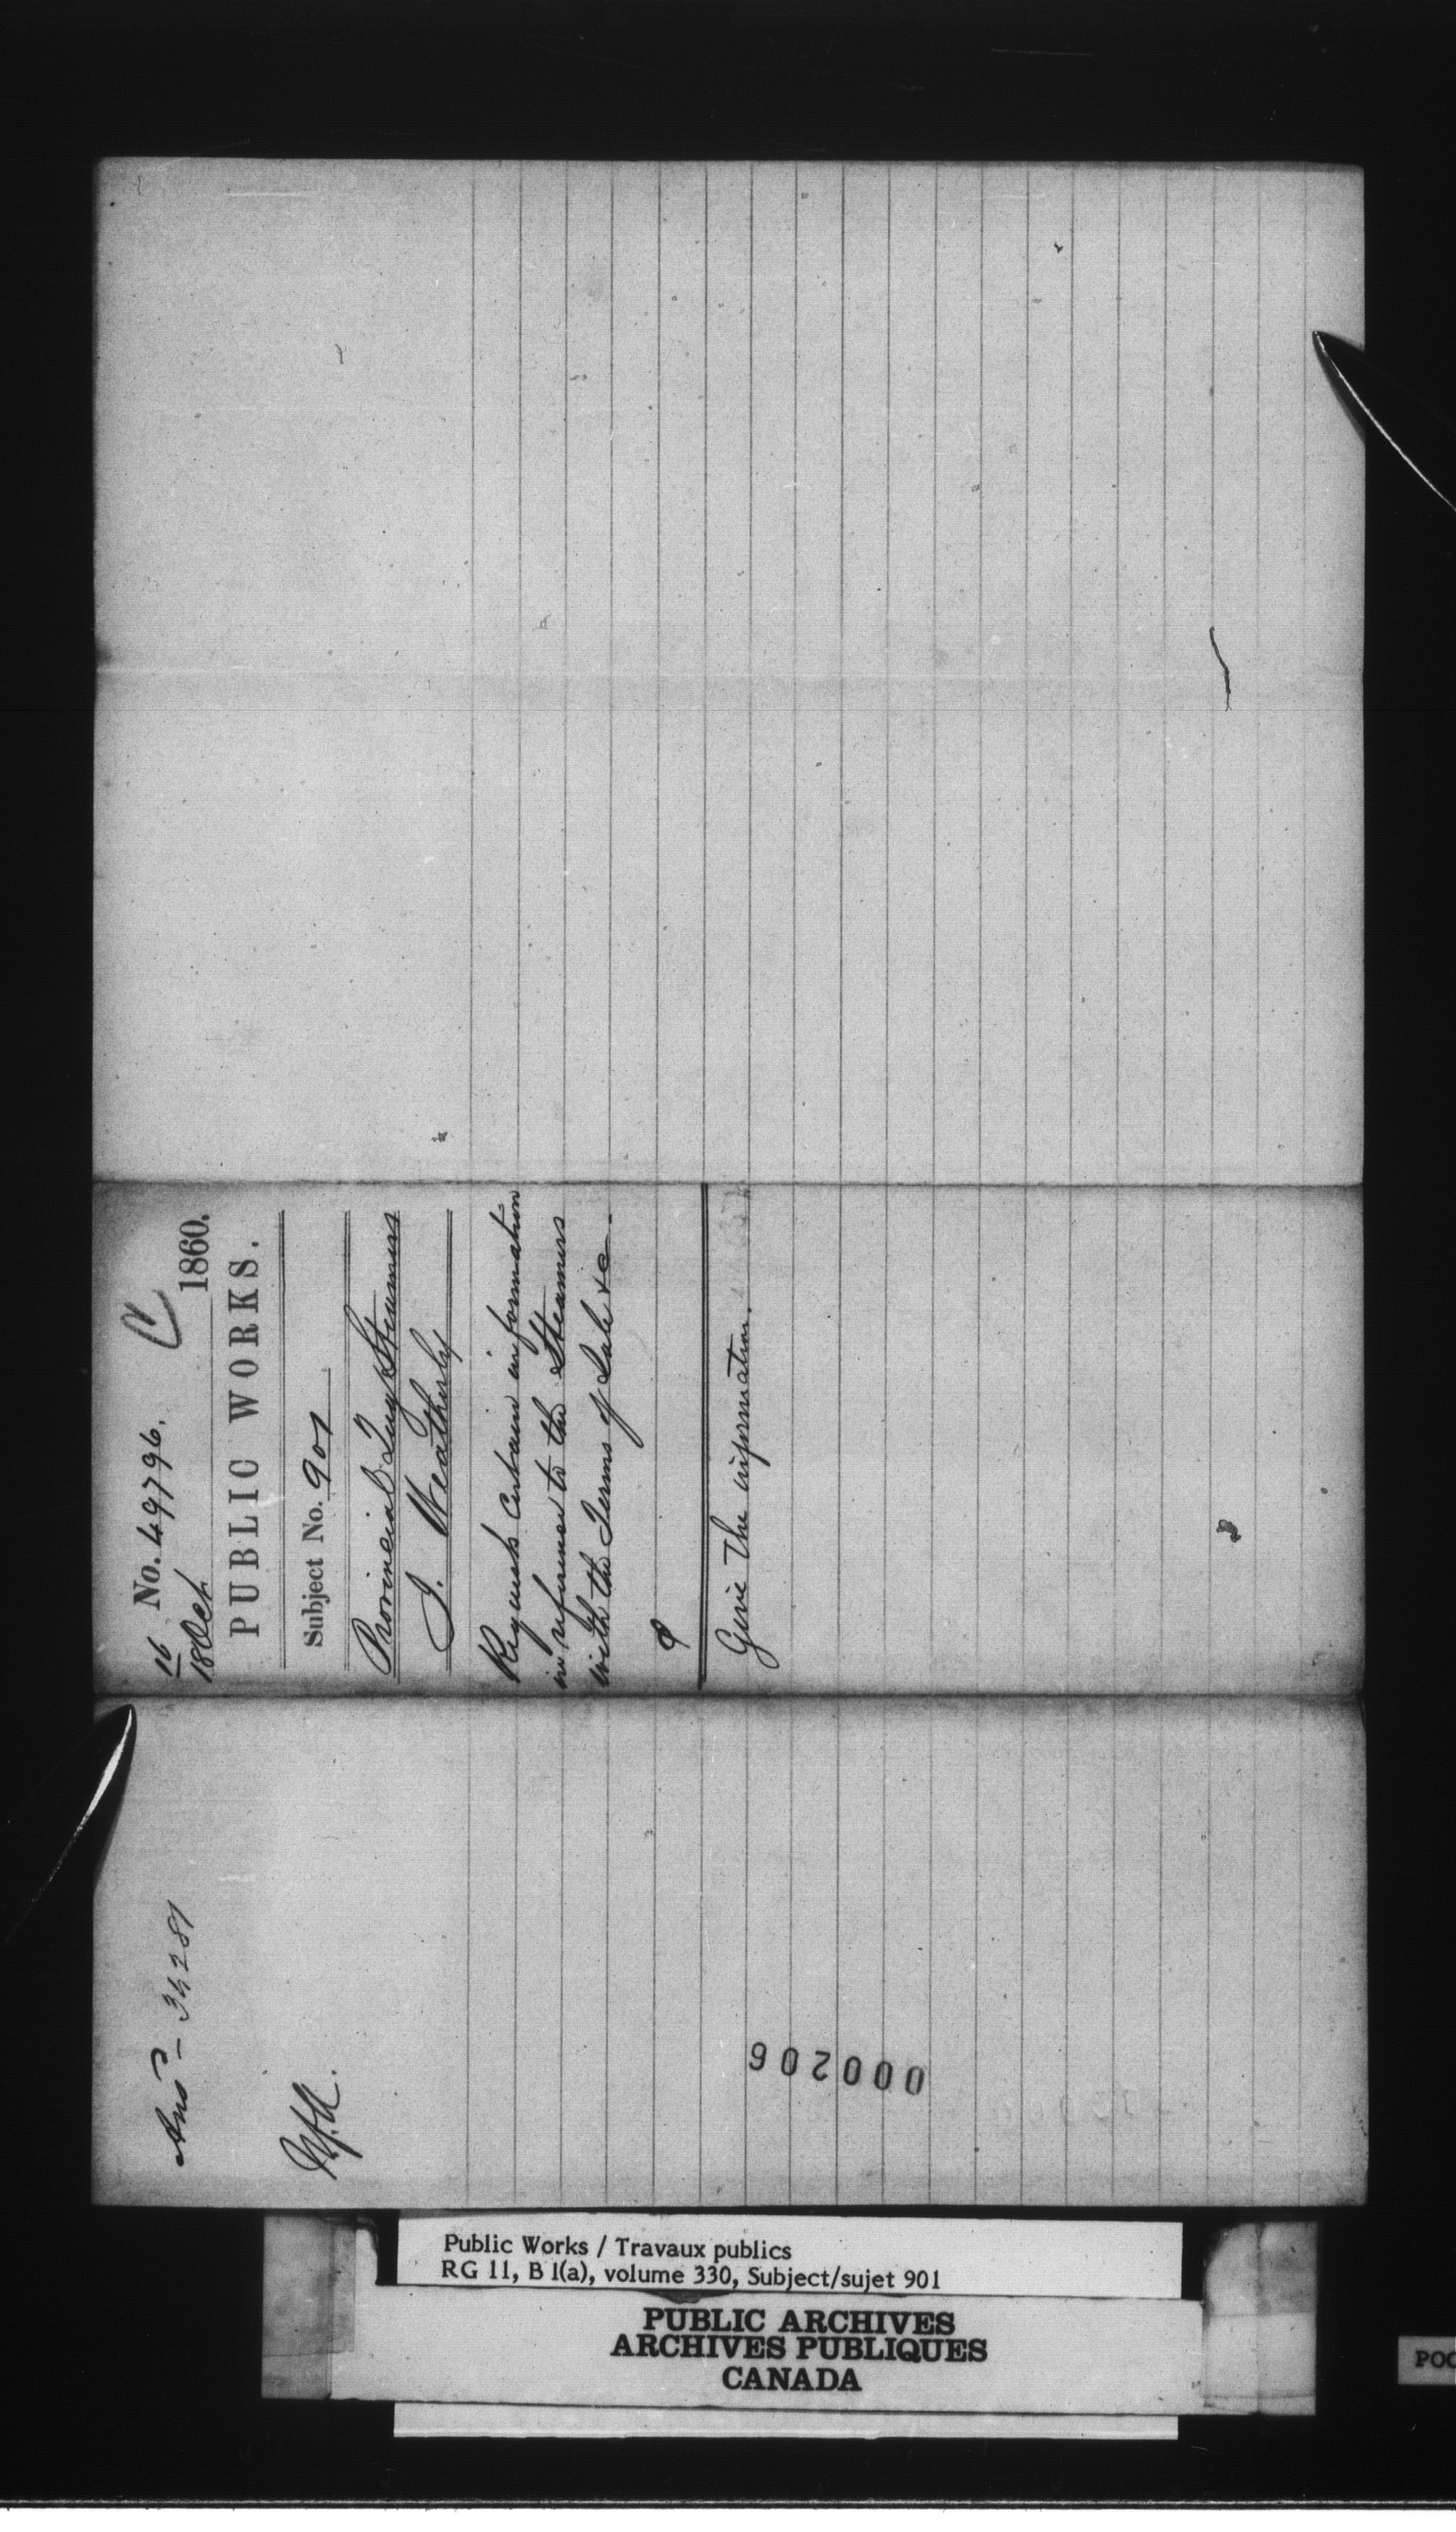 16 No. 49796.
18 Oct 1860.
PUBLIC WORKS.
Subject No. 901
Provincial Tug Steamers
J. Weatherley
Requests Certain information
in reference to the Steamers
with the Terms of Sale &c.
Give the information.
Ansd - 34281
000206
Public Works / Travaux publics
RG 11, B 1(a), volume 330, Subject/sujet 901
PUBLIC ARCHIVES
ARCHIVES PUBLIQUES
CANADA